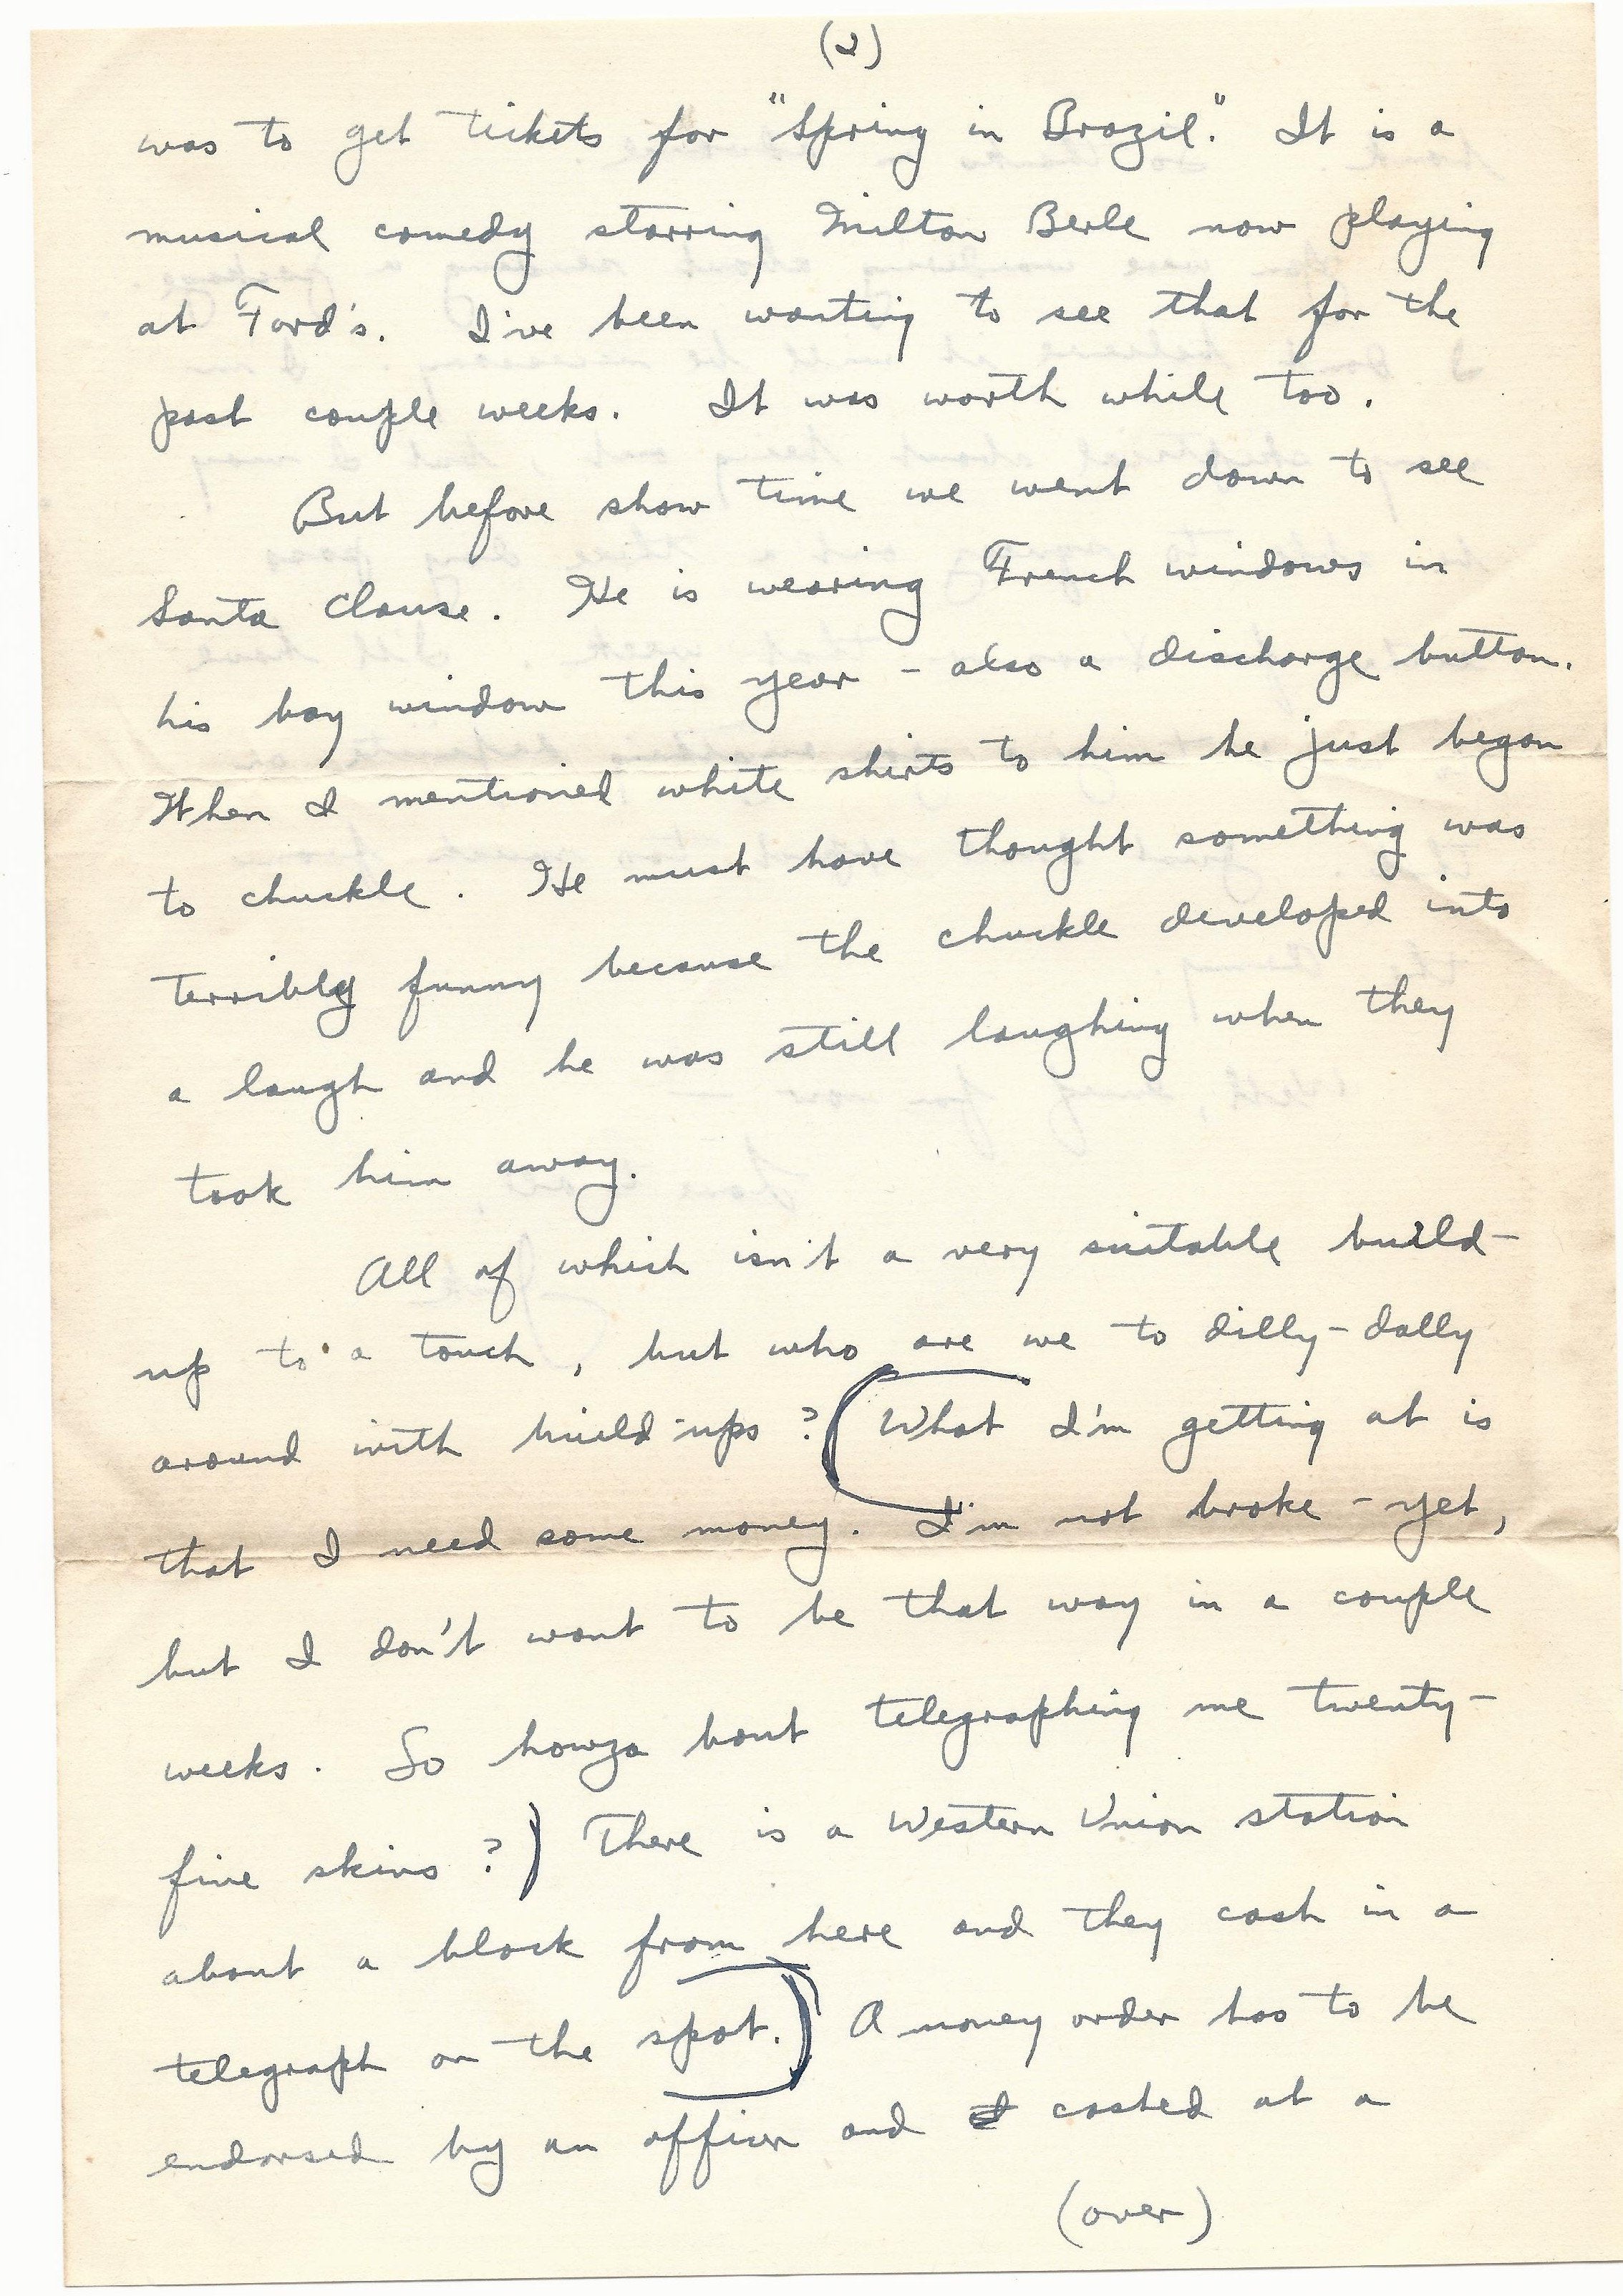 (2)
was to get tickets for "Spring in Brazil." It is a
musical comedy starring Milton Berle now playing
at Ford's. I've been wanting to see that for the
past couple weeks. It was worth while too.
But before show time we went down to see
Santa Clause. He is wearing French windows in
his bay window this year - also a discharge button.
When I mentioned white shirts to him he just began
to chuckle. He must have thought something was
terribly funny because the chuckle developed into
a laugh and he was still laughing when they
took him away.
All of which isn't a very suitable build-
up to a touch, but who are we to dilly-dally
around with build-ups? (What I'm getting at is
that I need some money. I'm not broke - yet,
but I don't want to be that way in a couple
weeks. So howza bout telegraphing me twenty-
five skins?) There is a Western Union station
about a block from here and they cash in a
telegraph on the spot.) A money order has to be
endorsed by an officer, and cashed at a
(over)